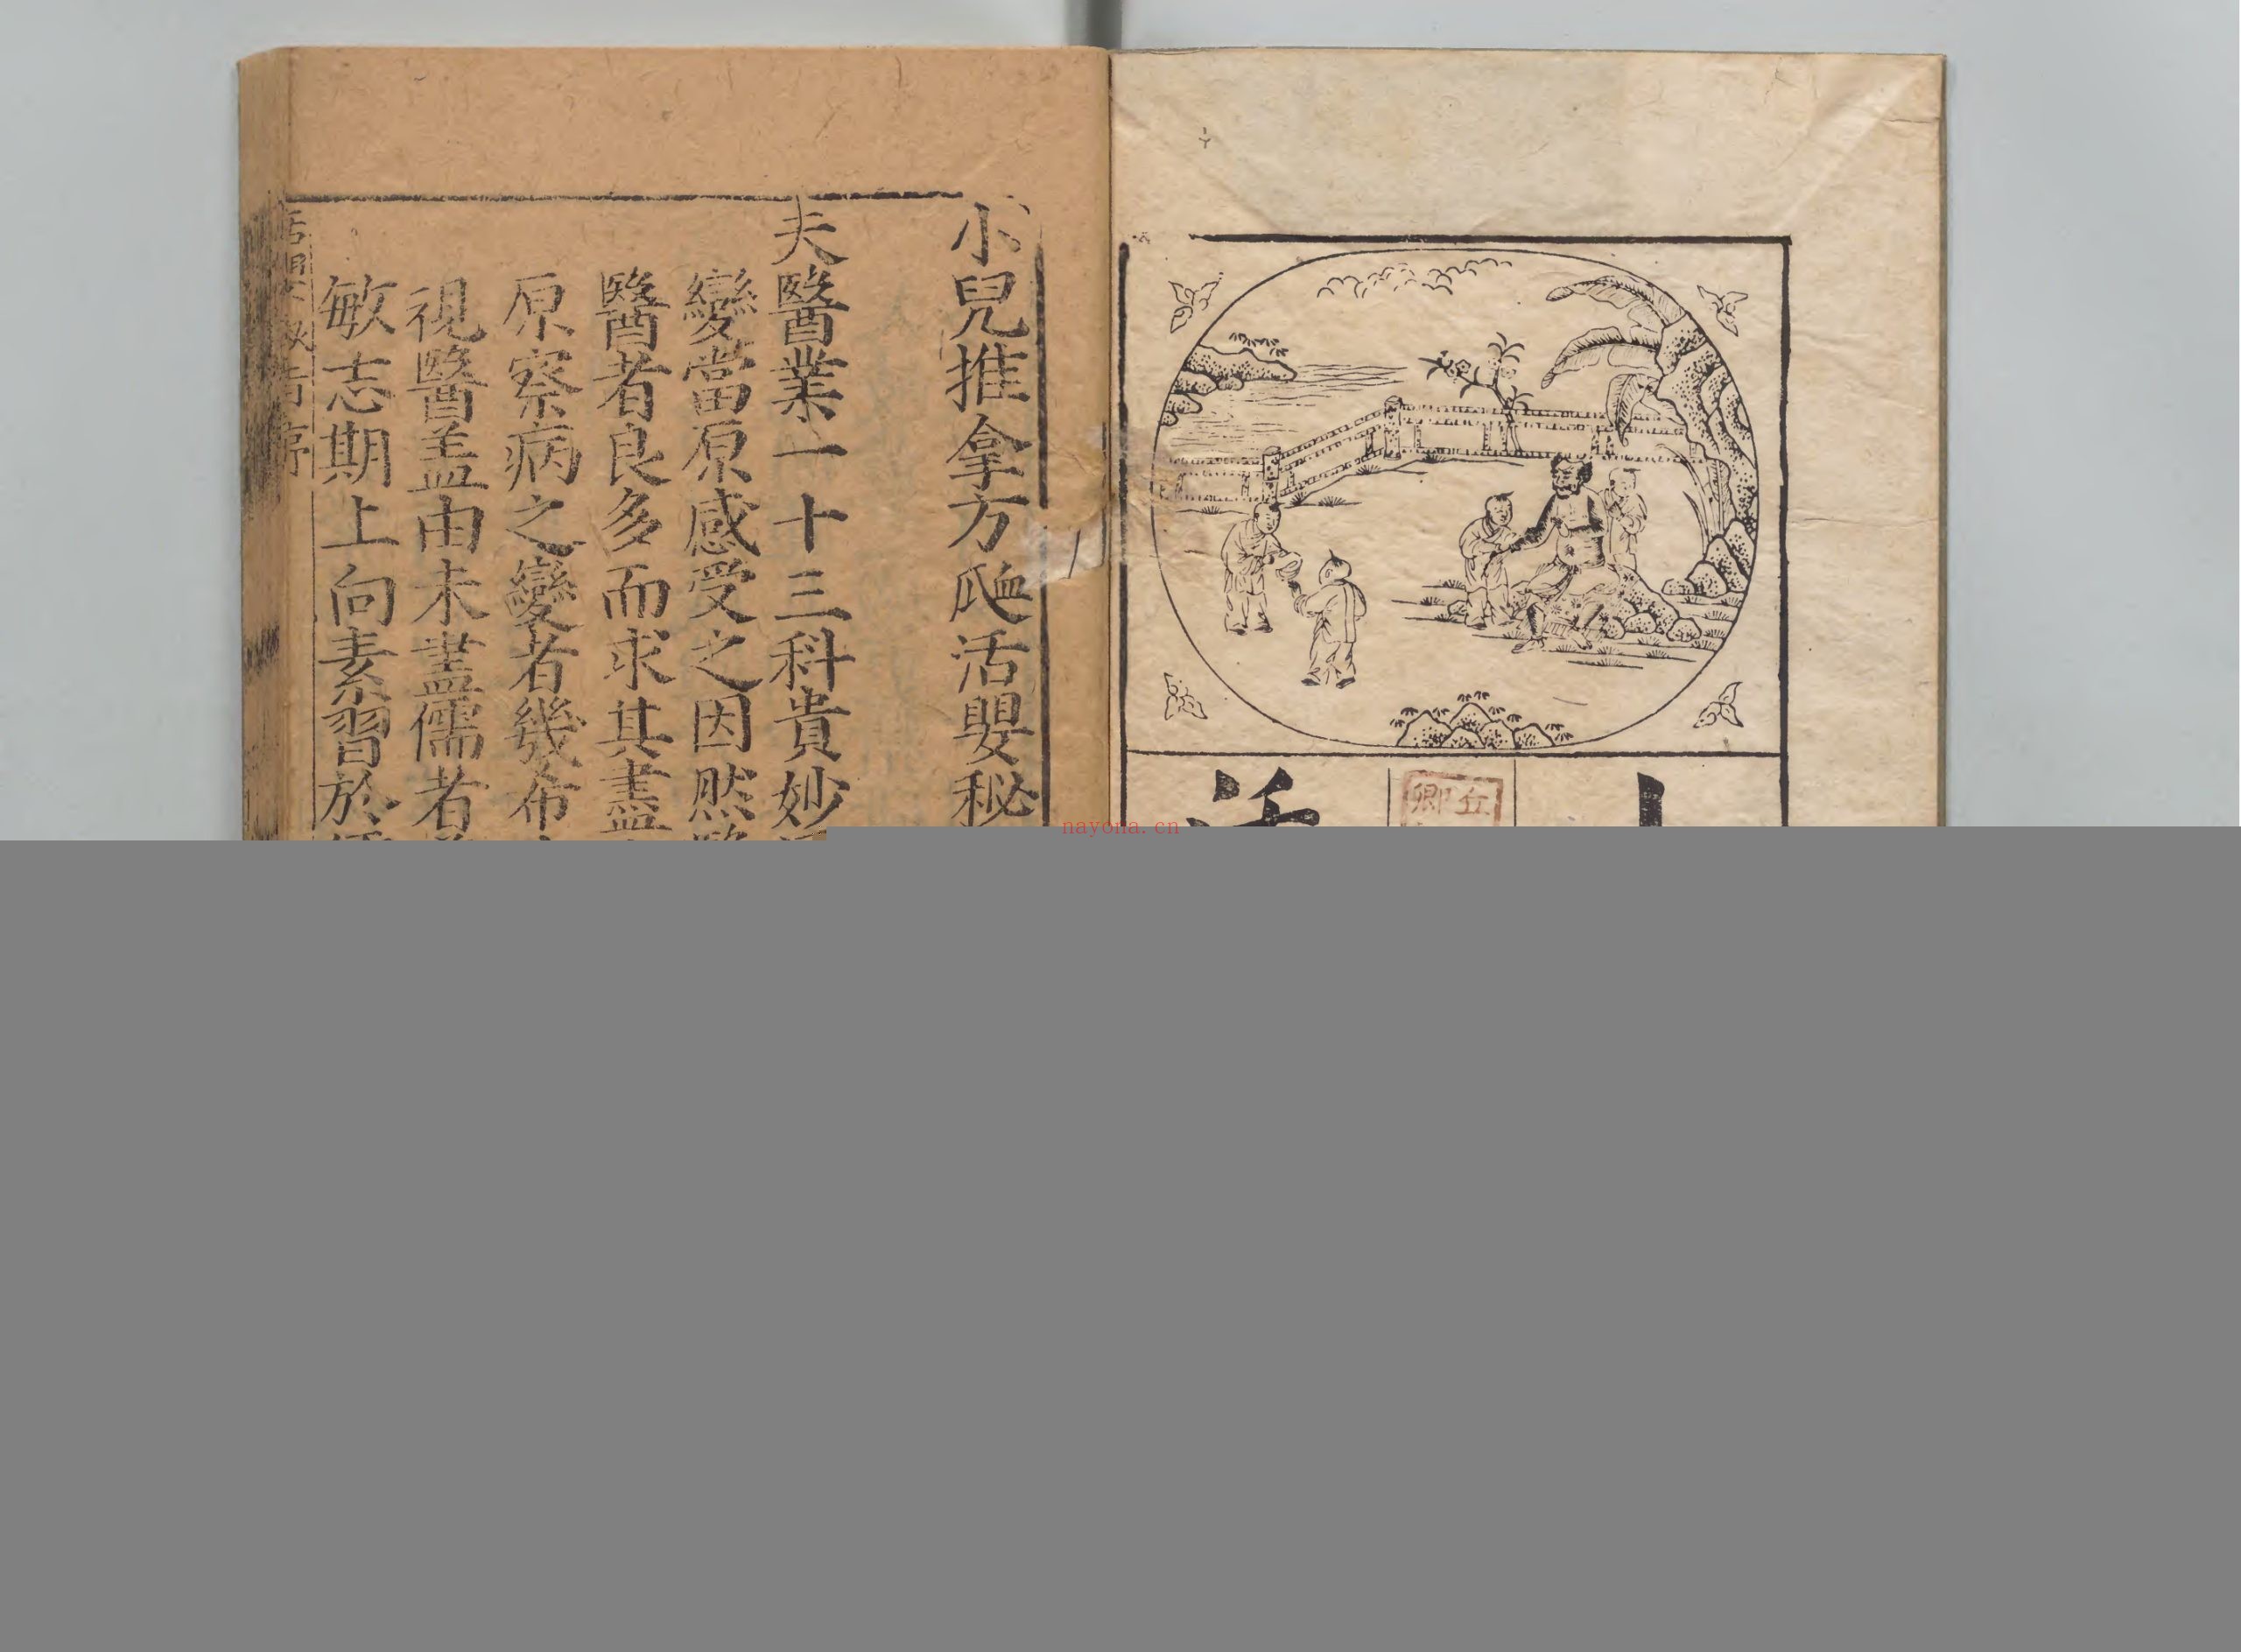 丘
卿
活
小兒推拿方㽿活嬰秘
夫醫業一十三科貴妙
變當原感受之因然
醫者良多而求其盡
原察病之變者幾希
視醫盖由未盡儒者
敏志期上向素習於
nayona.cn